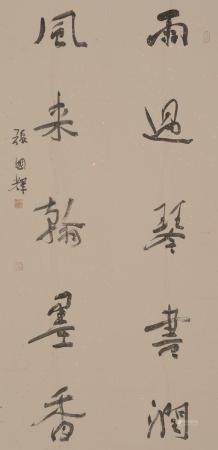 雨過琴書潤
風来翰墨香
張國輝